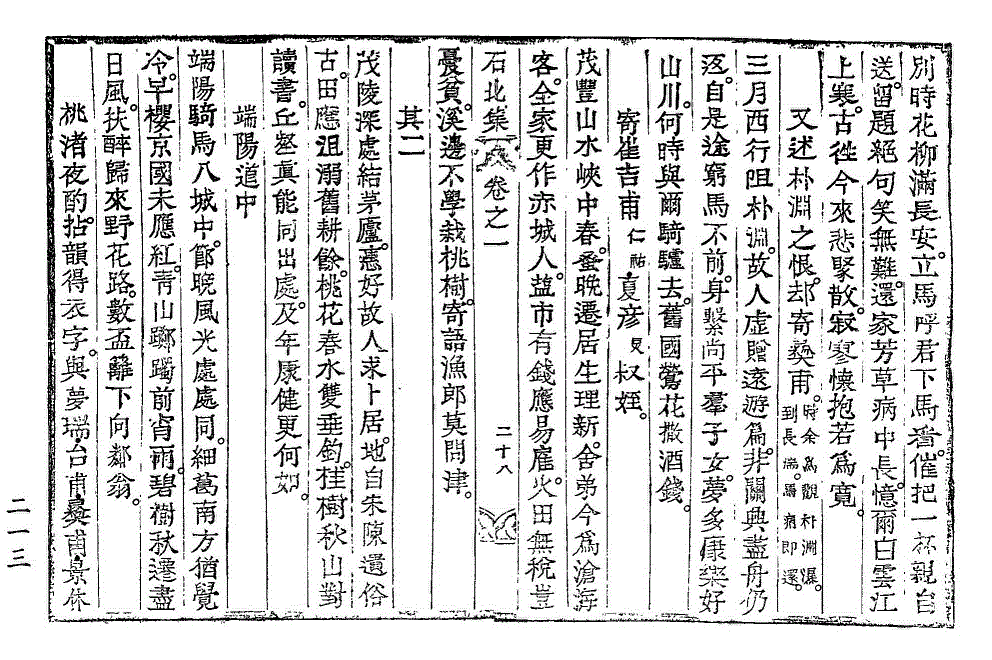 別時花柳滿長安。立馬呼君下馬看。催把一杯親自
送。留題絕句笑無難。還家芳草病中長。憶爾白雲江
上寒。古徃今來悲聚散。寂寥懷抱若爲寬。
又述朴淵之恨。却寄彜甫。時余爲觀朴淵瀑。到長湍。馬病即還。
三月西行阻朴淵。故人虛贈遠遊篇。非關興盡舟仍
返。自是途窮馬不前。身繫尙平羣子女。夢多康樂好
山川。何時與爾騎驢去。舊國鶯花撒酒錢。
寄崔吉甫仁祐夏彥 叔姪。
茂豐山水峽中春。蚤晩遷居生理新。舍弟今爲滄海
客。全家更作赤城人。盐市有錢應易雇。火田無稅豈
石北集 卷之一 二十八
憂貧。溪邊不學栽桃樹。寄語漁郎莫問津。
其二
茂陵深處結茅廬。憙好故人求卜居。地自朱陳遺俗
古。田應沮溺舊耕餘。桃花春水雙垂釣。桂樹秋山對
讀書。丘壑眞能同出處。及年康健更何如。
端陽道中
端陽騎馬八城中。節晩風光處處同。細葛南方猶覺
冷。早櫻京國未應紅。靑山躑躅前宵雨。碧樹秋遷盡
日風。扶醉歸來野花路。數盃籬下向鄰翁。
桃渚夜酌。拈韻得衣字。與夢瑞,台甫,彜甫,景休
二一三